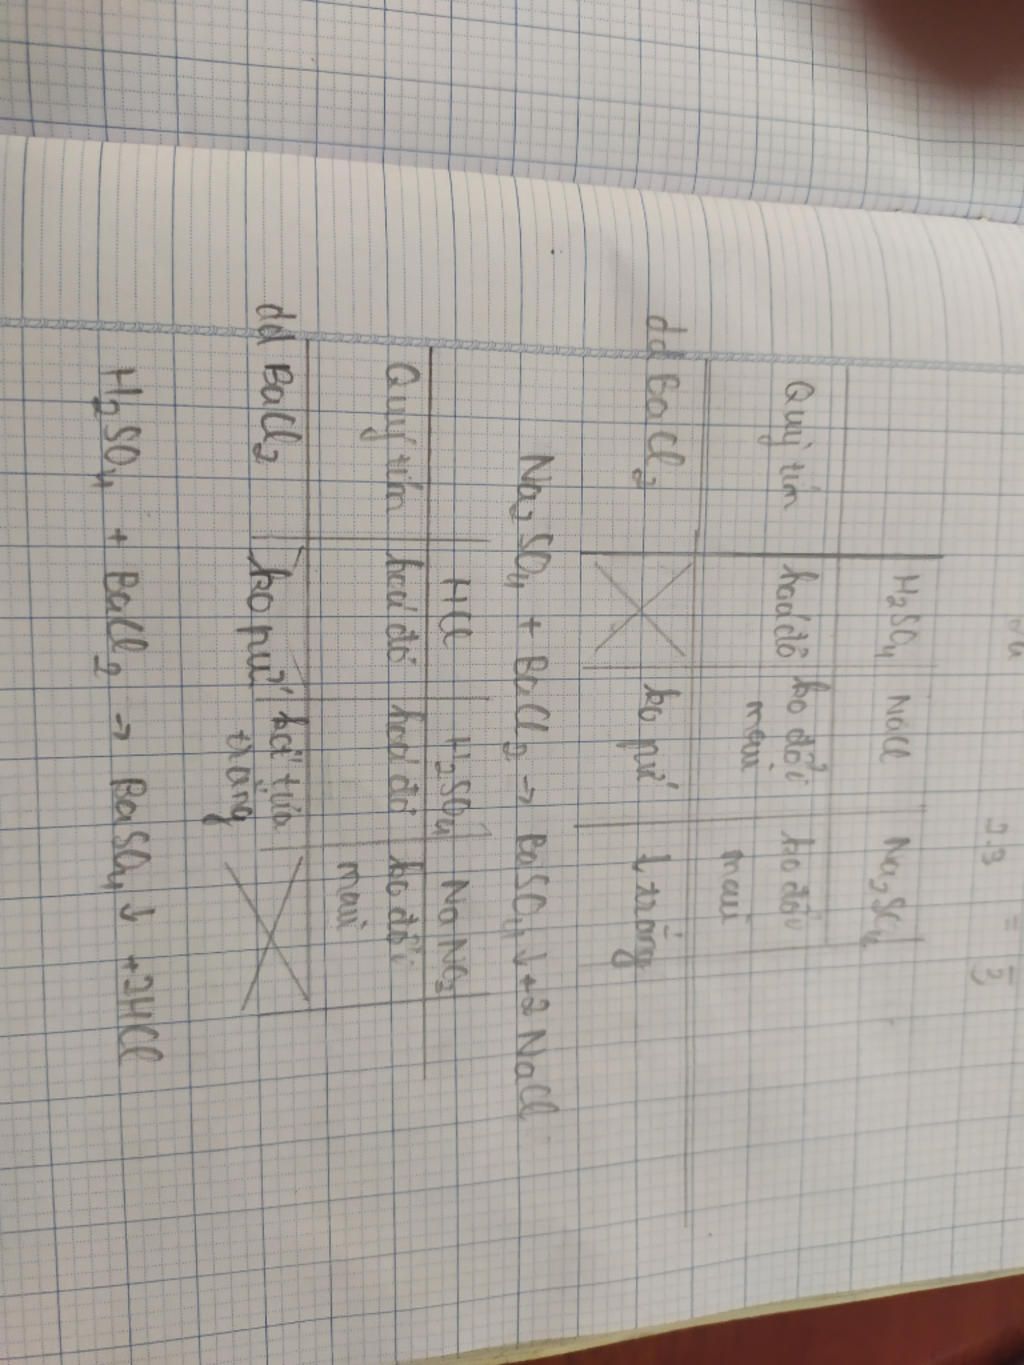 2.3 =
H₂SO₄ NaCl Na₂SO₄
Quỳ tím hoá đỏ ko đổi ko đổi
màu màu
dd BaCl₂ ko pứ ↓ trắng
Na₂SO₄ + BaCl₂ → BaSO₄ ↓ + 2 NaCl
HCl H₂SO₄ NaNO₃
Quỳ tím hoá đỏ hoá đỏ ko đổi
màu
dd BaCl₂ ko pứ kết tủa
trắng
H₂SO₄ + BaCl₂ → BaSO₄ ↓ + 2HCl